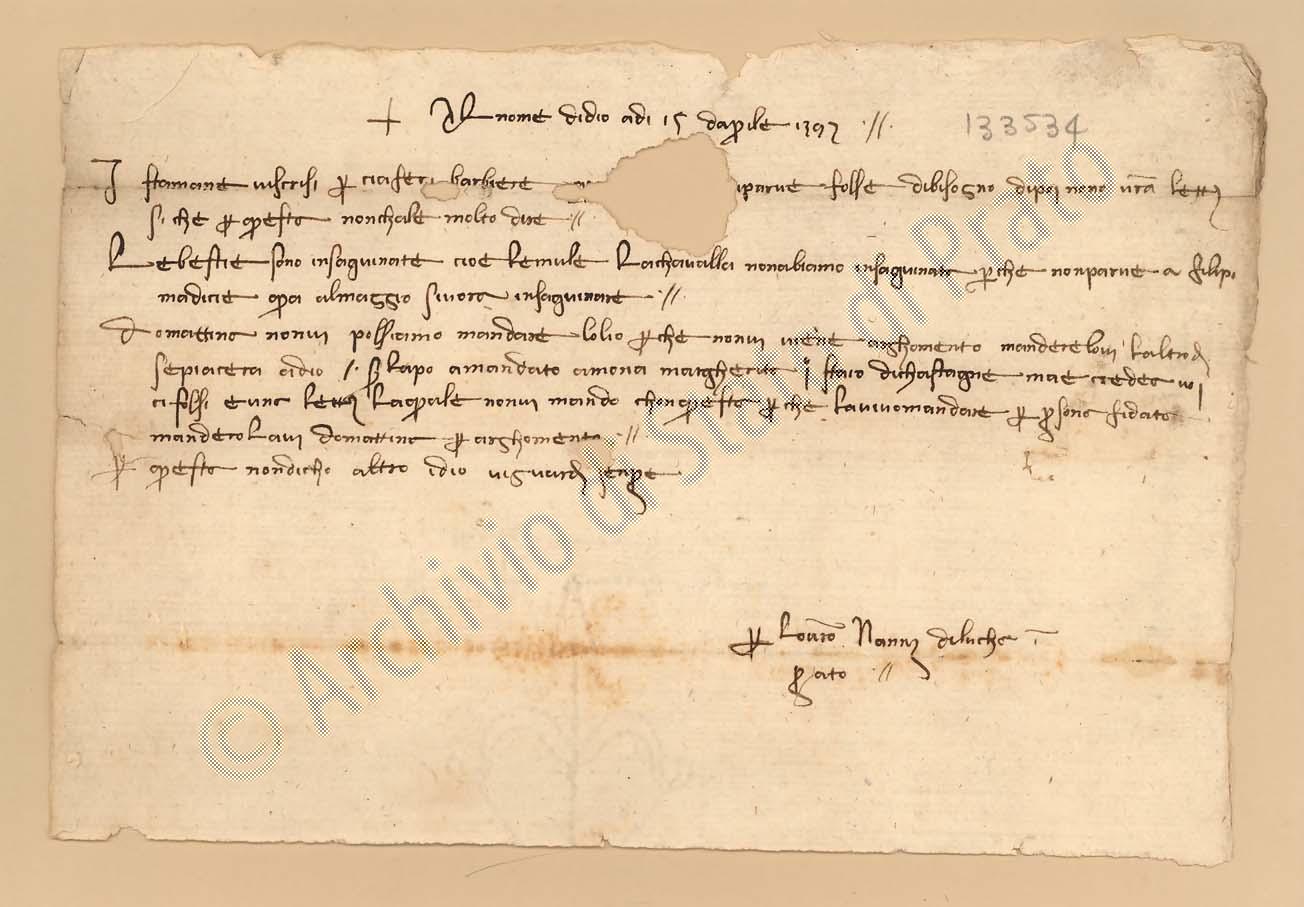 + Al nome didio adi 15 daprile 1397 //.
133534
Istamane viscrisi per ciaferi barbiere iparve fosse dibisogno dipoi nono vra lettera
siche per questo nonchale molto dire //
Lebestie sono insaguinate cioe lemule Lachavalla nonabiamo insaguinata perche nonparve a filipi
madicie qua almaggio sivora insaguinare //
Domattina nonvi possiamo mandare lolio perche nonvi viene arghomento manderelovi laltrodi
sepiacera adio // ser lapo a mandato amona margherita j staio dichastagne
e una lettera Laquale nonvi mando chonquesta perche lavivomandare per persona fidata
manderolavi domattina per arghomento //
per questa nondicho altro idio viguardi senpre
per Vostro Nanni dilucha i
prato //
© Archivio di Stato di Prato